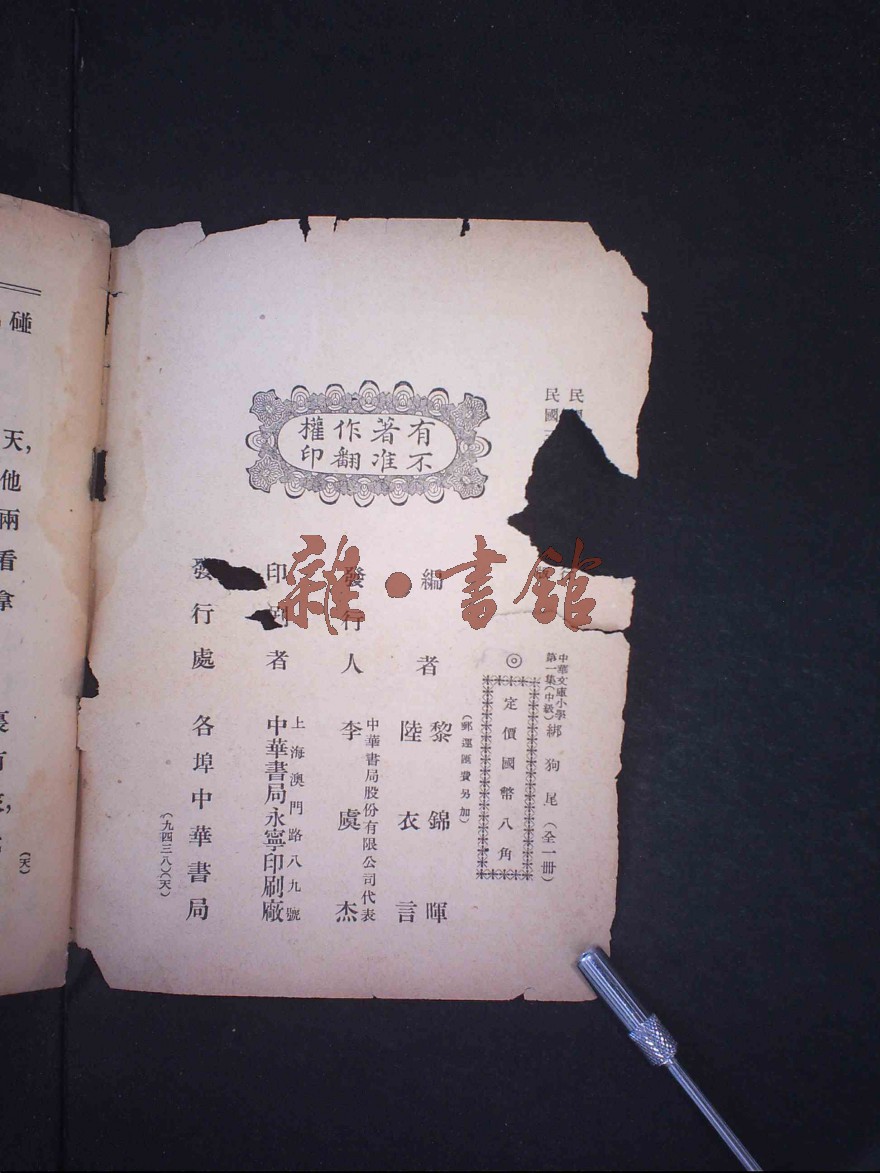 民
民國
中華文庫小學
第一集(中級)
綁狗尾(全一冊)
◎定價國幣八角
(郵運匯費另加)
有著作權
不准翻印
編者
黎錦暉
陸衣言
發行人
中華書局股份有限公司代表
李虞杰
印刷者
上海澳門路八九號
中華書局永寧印刷廠
發行處
各埠中華書局
(九四三八)(天)
雜·書館
碰
天,
他
兩
看
拿
(天)